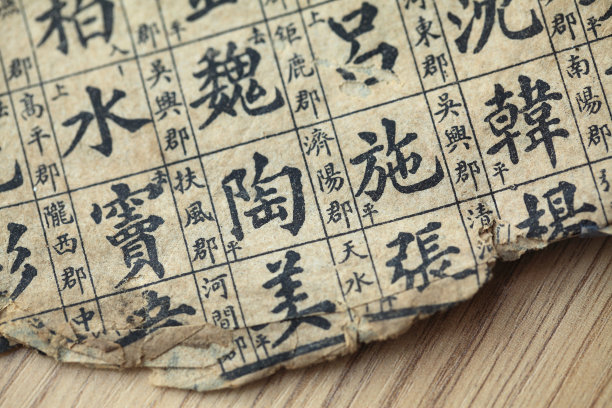 郡
南陽郡
沈
韓 平
楊
河東郡
吳興郡
清河
呂 上
施 平
張 平
鉅鹿郡
濟陽郡
天水
魏 去
陶 平
姜 平
郡
吳興郡
扶風郡
河間郡
柏 入
水 上
竇 去
郡
高平郡
隴西郡
中